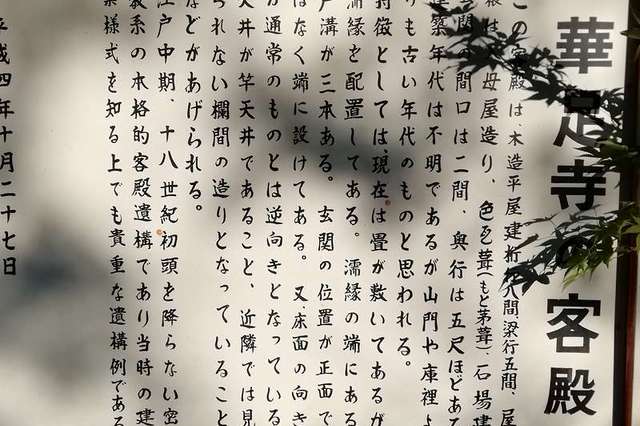 華足寺の客殿
この客殿は、木造平屋建桁行八間梁行五間、屋
根は 母屋造り、色瓦葺(もと茅葺)、石場建
間の間口は二間、奥行は五尺ほどある
建築年代は不明であるが山門や庫裡よ
りも古い年代のものと思われる。
特徴としては、現在は畳が敷いてあるが
濡縁を配置してある。濡縁の端にある
戸溝が三本ある。玄関の位置が正面で
はなく端に設けてある。又、床面の向き
が通常のものとは逆向きとなっている
天井が竿天井であること、近隣では見
られない欄間の造りとなっていること
などがあげられる。
江戸中期、十八世紀初頭を降らない密
教系の本格的客殿遺構であり当時の建
築様式を知る上でも貴重な遺構例である
平成四年十月二十七日